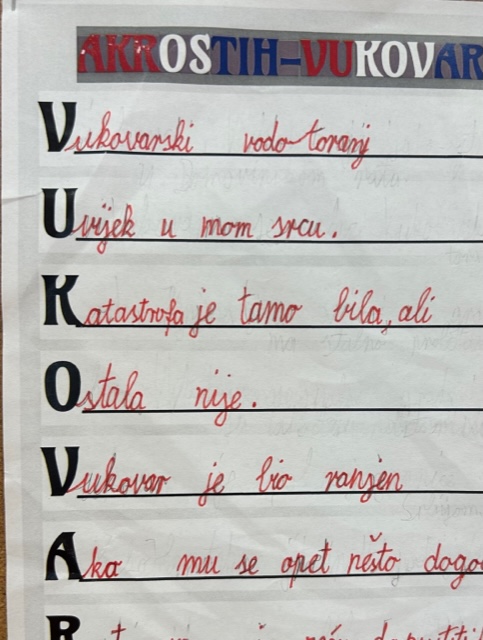 AKROSTIH-VUKOVAR
Vukovarski vodo-toranj
Uvijek u mom srcu.
Katastrofa je tamo bila, ali
Ostala nije.
Vukovar je bio ranjen
Ako mu se opet nešto dogo